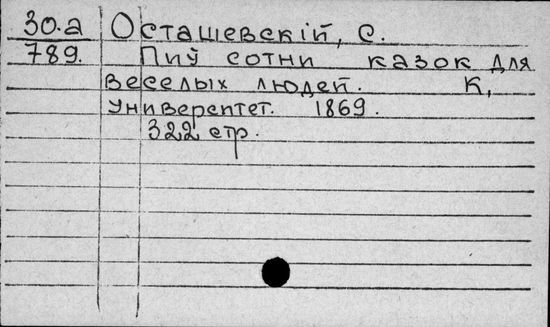 30.a Осташевскій, С.
789. Пиў сотни казок для
веселых людей. К,
Университет. 1869.
322 стр.